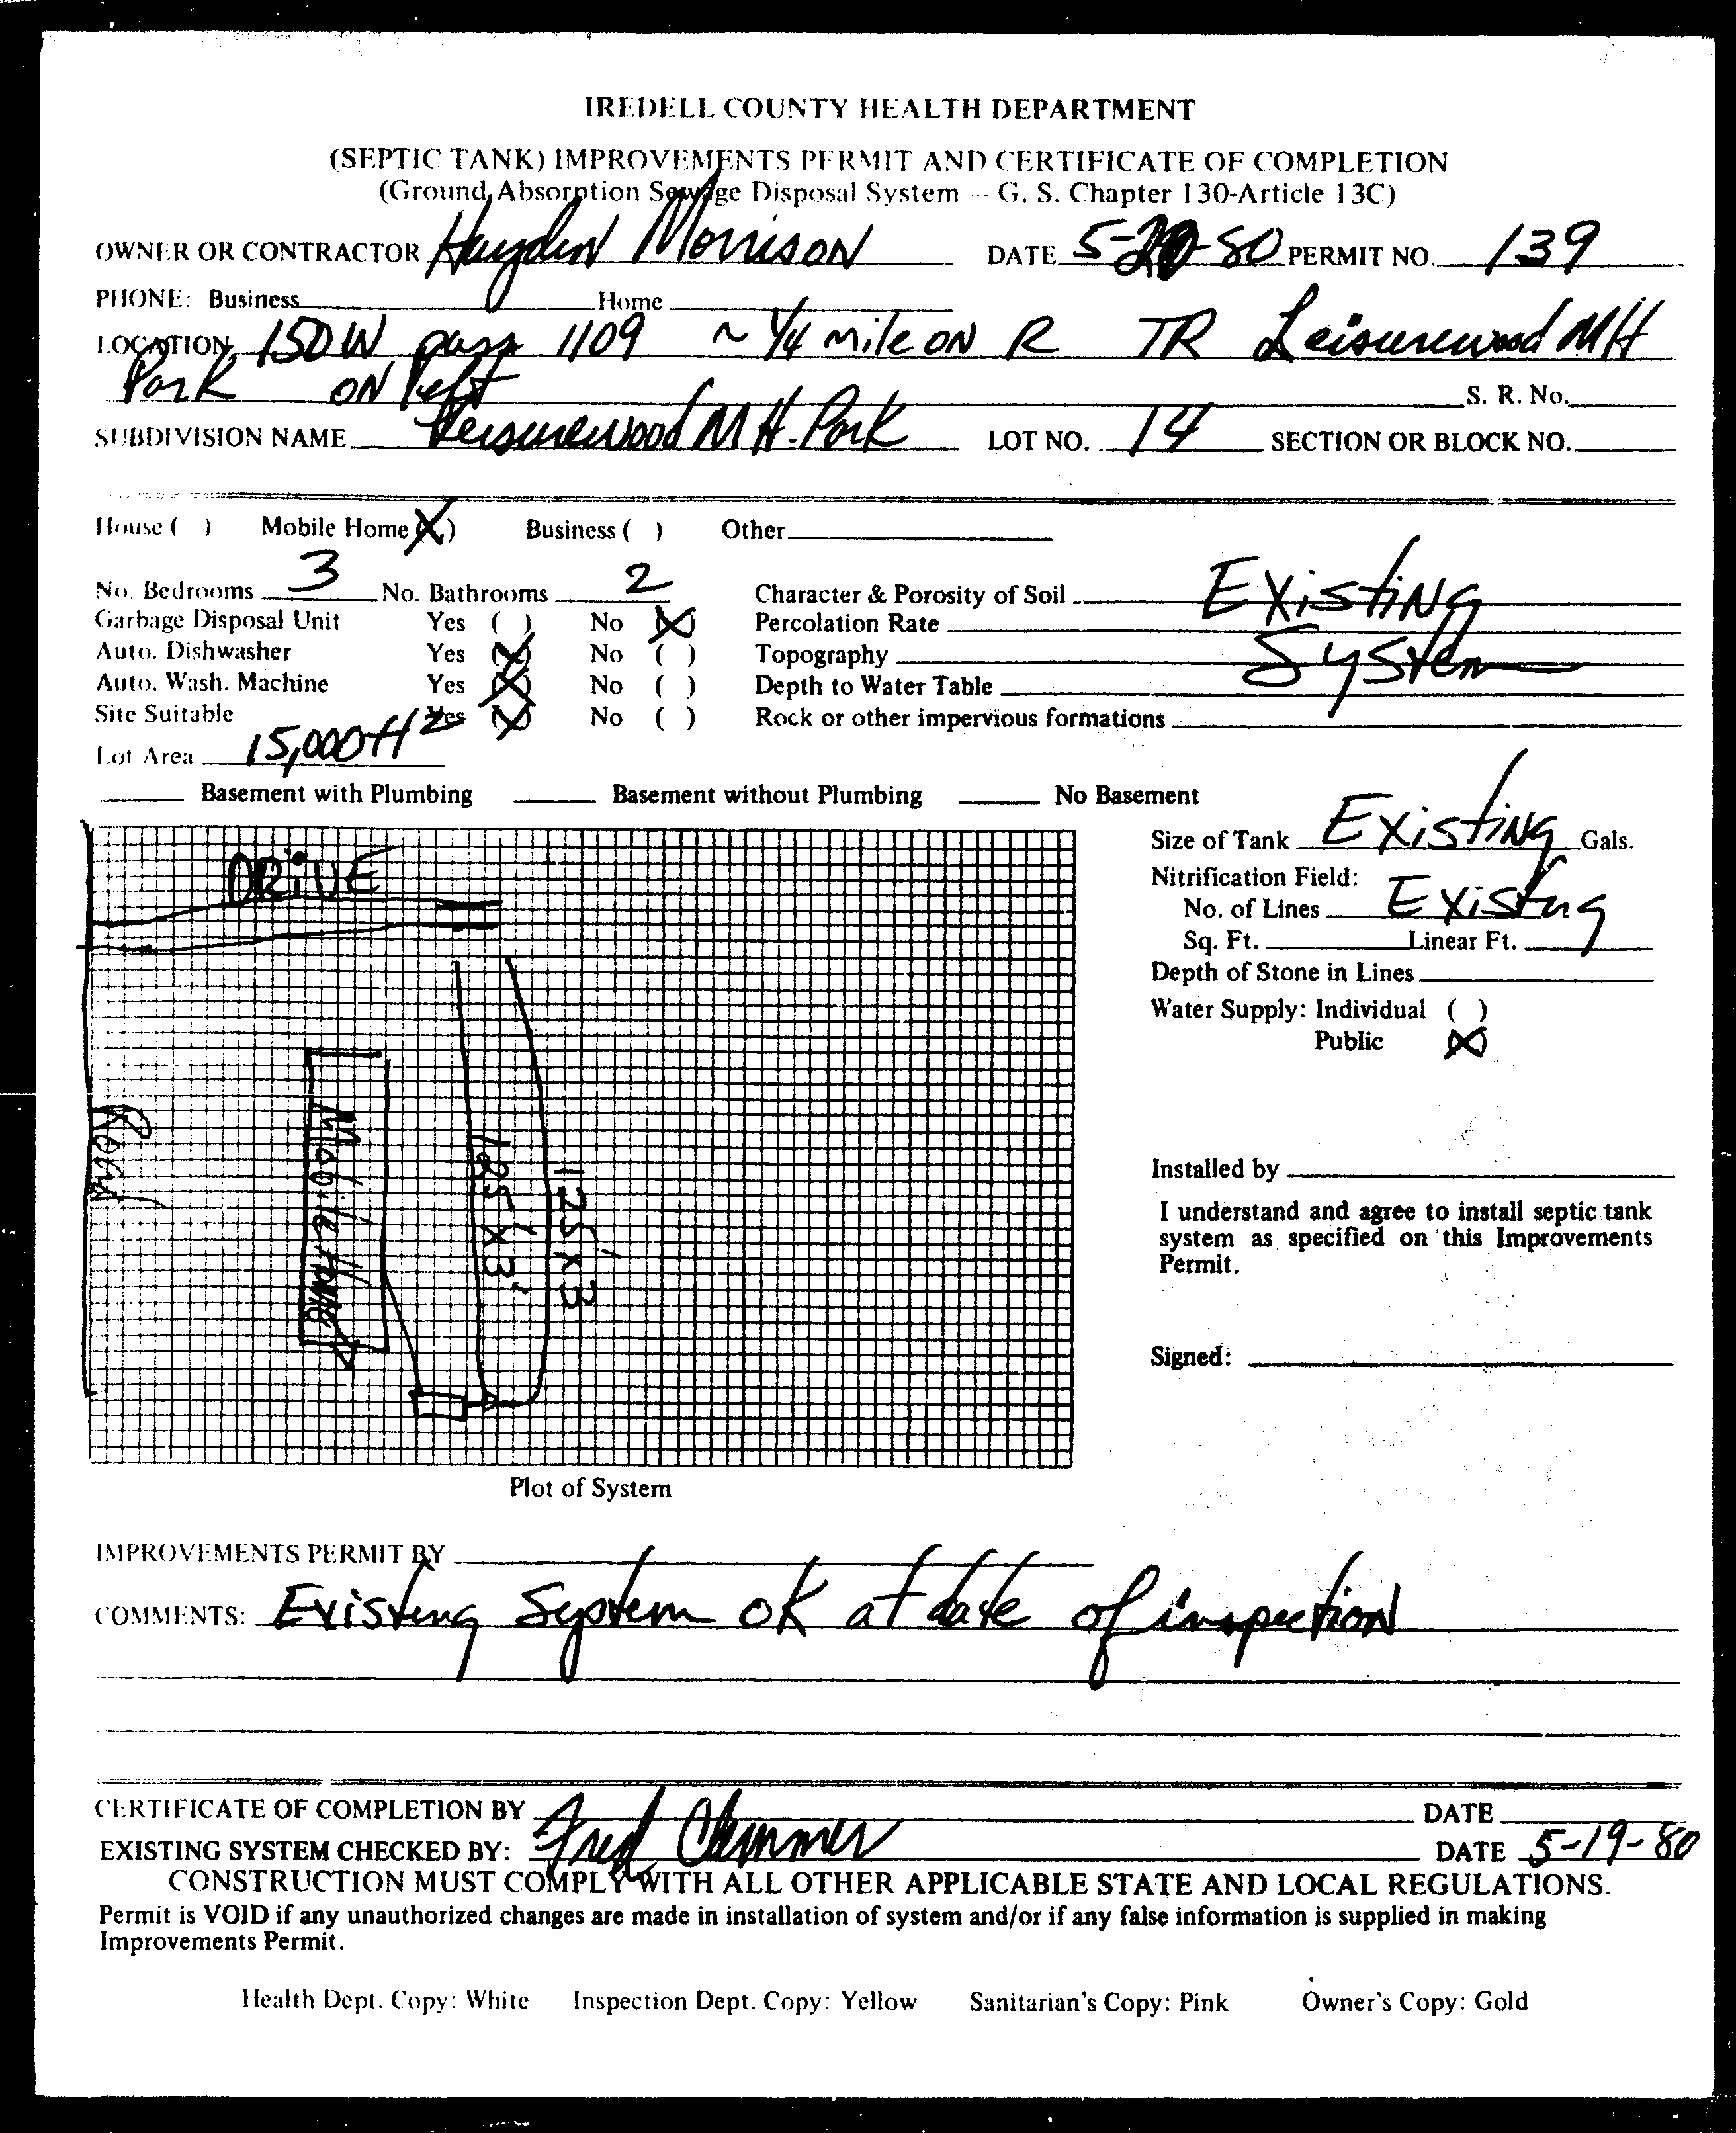 IREDELL COUNTY HEALTH DEPARTMENT
(SEPTIC TANK) IMPROVEMENTS PERMIT AND CERTIFICATE OF COMPLETION
(Ground Absorption Sewage Disposal System -- G. S. Chapter 130-Article 13C)
OWNER OR CONTRACTOR Hayden Morrison DATE 5- -80 PERMIT NO. 139
PHONE: Business Home
LOCATION 150W pass 1109 ~ 1/4 mile ON R TR Leisurewood MH
Park ON left S. R. No.
SUBDIVISION NAME Leisurewood M H. Park LOT NO. 14 SECTION OR BLOCK NO.
House ( ) Mobile Home (X) Business ( ) Other
No. Bedrooms 3 No. Bathrooms 2 Character & Porosity of Soil Existing
Garbage Disposal Unit Yes ( ) No (X) Percolation Rate
Auto. Dishwasher Yes (X) No ( ) Topography System
Auto. Wash. Machine Yes (X) No ( ) Depth to Water Table
Site Suitable Yes (X) No ( ) Rock or other impervious formations
Lot Area 15,000 ft 2
Basement with Plumbing Basement without Plumbing No Basement
DRIVE
Road
Mobile Home
125' x 3'
125' x 3
Plot of System
Size of Tank Existing Gals.
Nitrification Field:
No. of Lines Existing
Sq. Ft. Linear Ft.
Depth of Stone in Lines
Water Supply: Individual ( )
Public (X)
Installed by
I understand and agree to install septic tank
system as specified on this Improvements
Permit.
Signed:
IMPROVEMENTS PERMIT BY
COMMENTS: Existing System OK at date of inspection
CERTIFICATE OF COMPLETION BY DATE
EXISTING SYSTEM CHECKED BY: Fred DATE 5-19-80
CONSTRUCTION MUST COMPLY WITH ALL OTHER APPLICABLE STATE AND LOCAL REGULATIONS.
Permit is VOID if any unauthorized changes are made in installation of system and/or if any false information is supplied in making
Improvements Permit.
Health Dept. Copy: White Inspection Dept. Copy: Yellow Sanitarian's Copy: Pink Owner's Copy: Gold